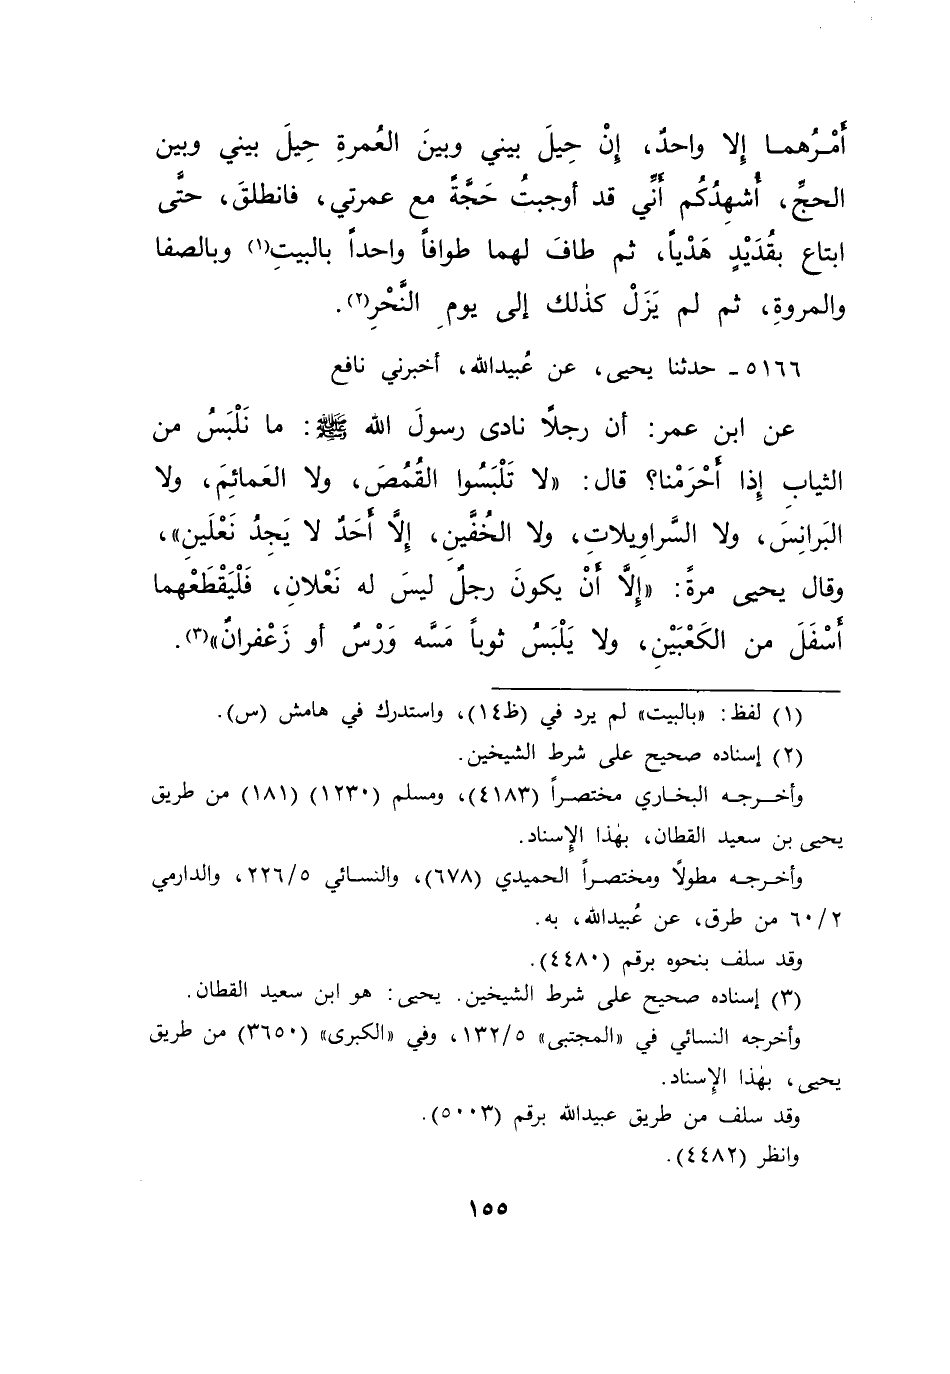 أَمْرُهمـا إلا واحدٌ، إِنْ حِيلَ بيني وبينَ العُمرةِ حِيلَ بيني وبين
الحجِّ، أُشهِدُكُم أَنِّي قد أوجبتُ حَجَّةً مع عمرتي، فانطلقَ، حتَّى
ابتاع بقُدَيْدٍ هَدْياً، ثم طافَ لهما طوافاً واحداً بالبيتِ(١) وبالصفا
والمروةِ، ثم لم يَزَلْ كذٰلك إلى يومِ النَّحْرِ(٢).
٥١٦٦ ـ حدثنا يحيى، عن عُبيدالله، أخبرني نافع
عن ابن عمر: أن رجلًا نادى رسولَ الله ﷺ: ما نَلْبَسُ من
الثيابِ إِذا أَحْرَمْنا؟ قال: «لا تَلْبَسُوا القُمُصَ، ولا العَمائِمَ، ولا
البَرانِسَ، ولا السَّراويلاتِ، ولا الخُفَّينِ، إِلَّا أَحَدٌ لا يَجِدُ نَعْلَينِ»،
وقال يحيى مرةً: «إِلَّا أَنْ يكونَ رجلٌ ليسَ له نَعْلانِ، فَلْيَقْطَعْهما
أَسْفَلَ من الكَعْبَيْنِ، ولا يَلْبَسُ ثوباً مَسَّه وَرْسٌ أو زَعْفرانٌ»(٣).
(١) لفظ: «بالبيت» لم يرد في (ظ١٤)، واستدرك في هامش (س).
(٢) إسناده صحيح على شرط الشيخين.
وأخـرجـه البخـاري مختصـراً (٤١٨٣)، ومسلم (١٢٣٠) (١٨١) من طريق
يحيى بن سعيد القطان، بهٰذا الإِسناد.
وأخـرجـه مطولًا ومختصـراً الحميدي (٦٧٨)، والنسائي ٢٢٦/٥، والدارمي
٦٠/٢ من طرق، عن عُبيدالله، به.
وقد سلف بنحوه برقم (٤٤٨٠).
(٣) إسناده صحيح على شرط الشيخين. يحيى: هو ابن سعيد القطان.
وأخرجه النسائي في «المجتبى» ١٣٢/٥، وفي «الكبرى» (٣٦٥٠) من طريق
يحيى، بهٰذا الإِسناد.
وقد سلف من طريق عبيدالله برقم (٥٠٠٣).
وانظر (٤٤٨٢).
١٥٥